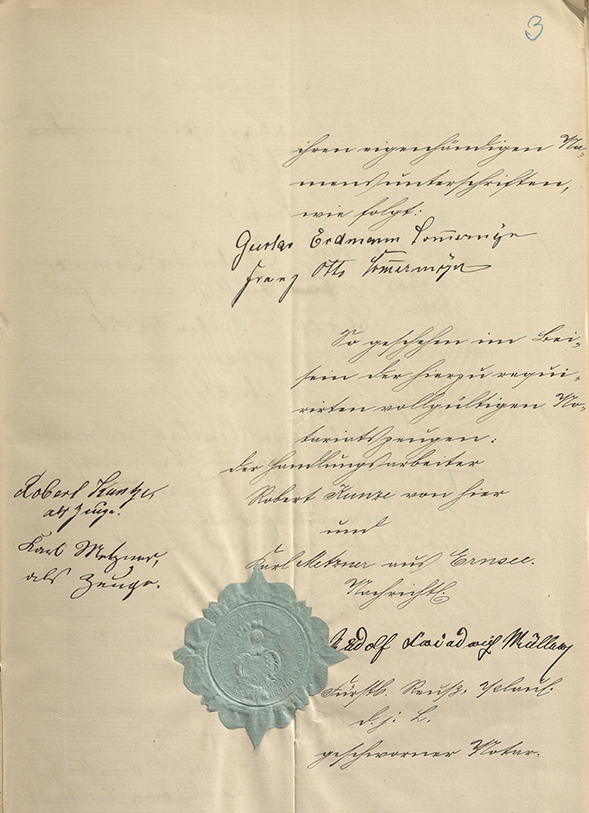 3
ihren eigenhändigen Na-
mensunterschriften,
wie folgt:
Gustav Erdmann
Franz Otto
So geschehen im Bei-
sein der hierzu requi-
rirten vollgültigen No-
tariatszeugen:
der Handlungsarbeiter
Robert Kunze von hier
und
Karl Metzner aus Ernsee.
Nachrichtl.
Robert Kunze,
als Zeuge.
Karl Metzner,
als Zeuge.
Rudolf Ludwig Müller,
Fürstl. Reuß. Plaui.
d. j. L.
geschworner Notar.